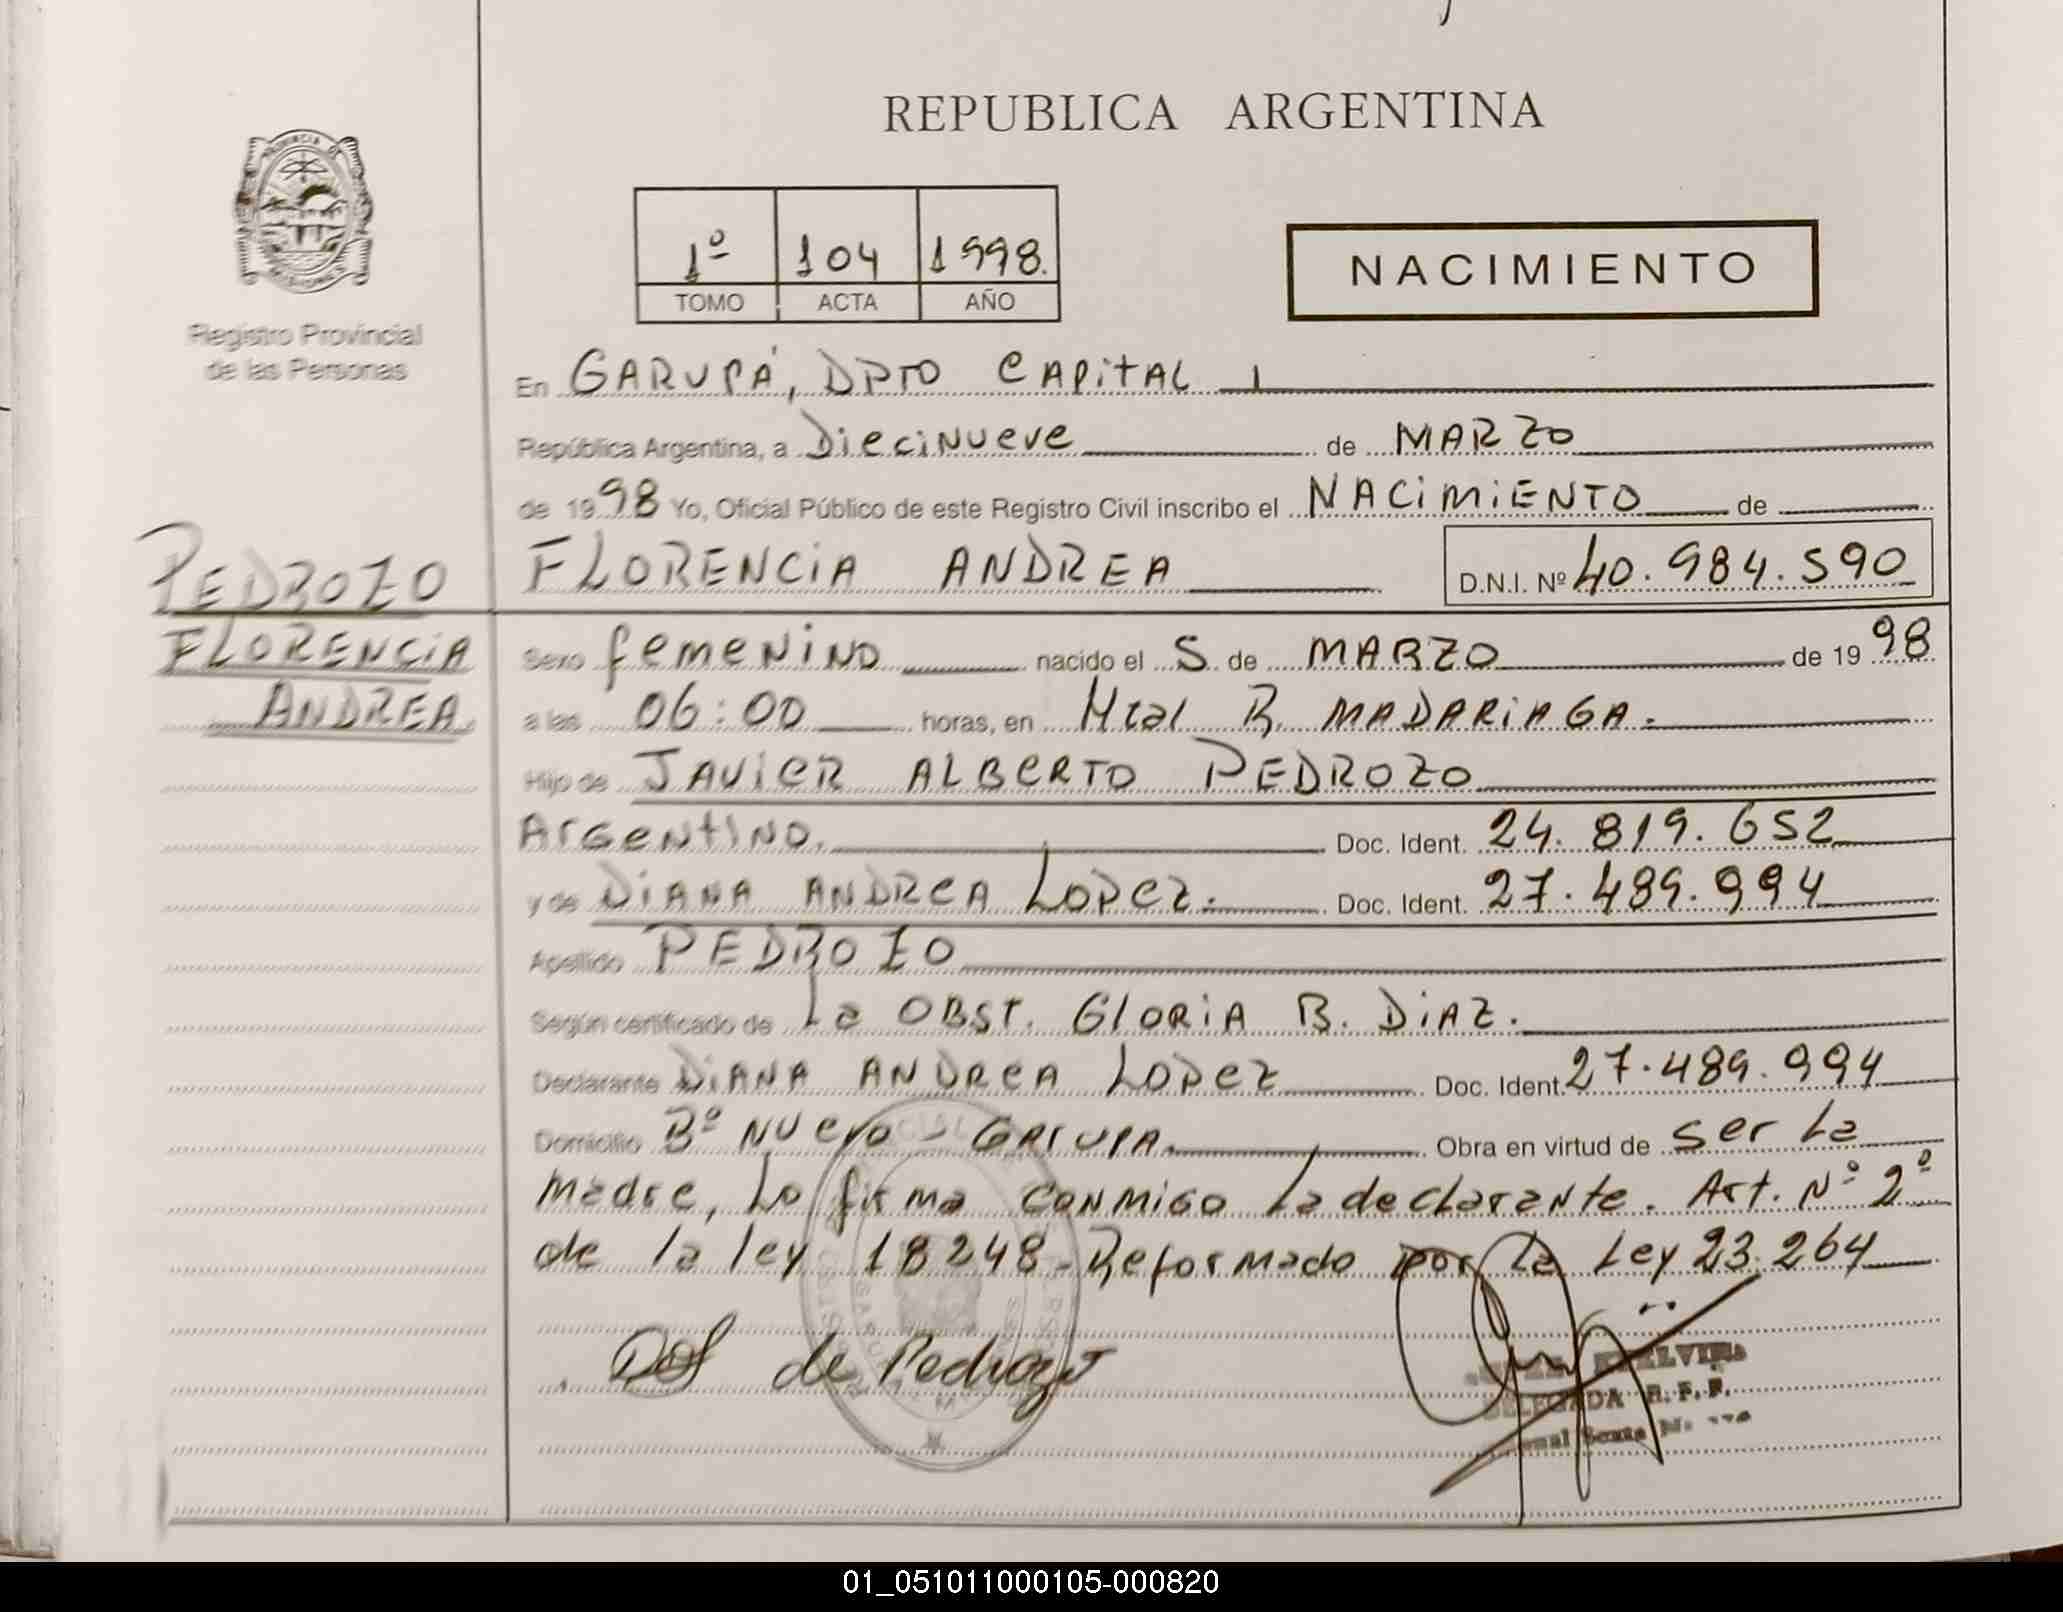 REPUBLICA ARGENTINA
1º 104 1998.
TOMO ACTA AÑO
NACIMIENTO
Registro Provincial
de las Personas
En GARUPÁ, DPTO CAPITAL
República Argentina, a DiecinUeve de MARZO
de 1998 Yo, Oficial Público de este Registro Civil inscribo el NACIMIENTO de
FLORENCIA ANDREA D.N.I. Nº 40.984.590
PEDROZO
FLORENCIA
ANDREA
Sexo femenino nacido el 5 de MARZO de 1998
a las 06:00 horas, en Htal R. MADARIAGA.
Hijo de JAVIER ALBERTO PEDROZO
Argentino. Doc. Ident. 24.819.652
y de DIANA ANDREA LOPEZ. Doc. Ident. 27.489.994
Apellido PEDROZO
Según certificado de La OBST. GLORIA B. DIAZ.
Declarante DIANA ANDREA LOPEZ Doc. Ident. 27.489.994
Domicilio Bº NUEVO - GARUPA. Obra en virtud de ser La
Madre, Lo firma conmigo La declarante. Art. Nº 2º
de la ley 18248 - Reformado por la Ley 23.264
de Pedrozo
DELEGADA R.P.P.
01_051011000105-000820